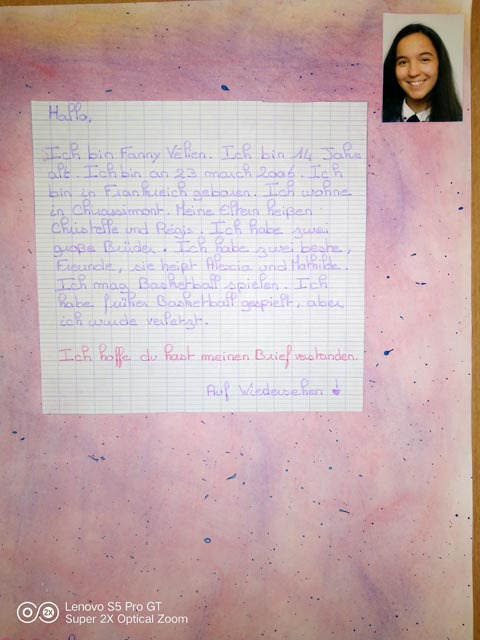 Hallo,
Ich bin Fanny Vélien. Ich bin 14 Jahre
alt. Ich bin an 23 march 2006. Ich
bin in Frankreich geboren. Ich wohne
in Chuassimont. Meine Eltern heißen
Christelle und Régis. Ich habe zwei
große Brüder. Ich habe zwei beste,
Freunde, sie heißt Alexia und Mathilde.
Ich mag Basketball spielen. Ich
habe früher Basketball gespielt, aber
ich wurde verletzt.
Ich hoffe du hast meinen Brief verstanden.
Auf Wiedersehen
Lenovo S5 Pro GT
2X
Super 2X Optical Zoom